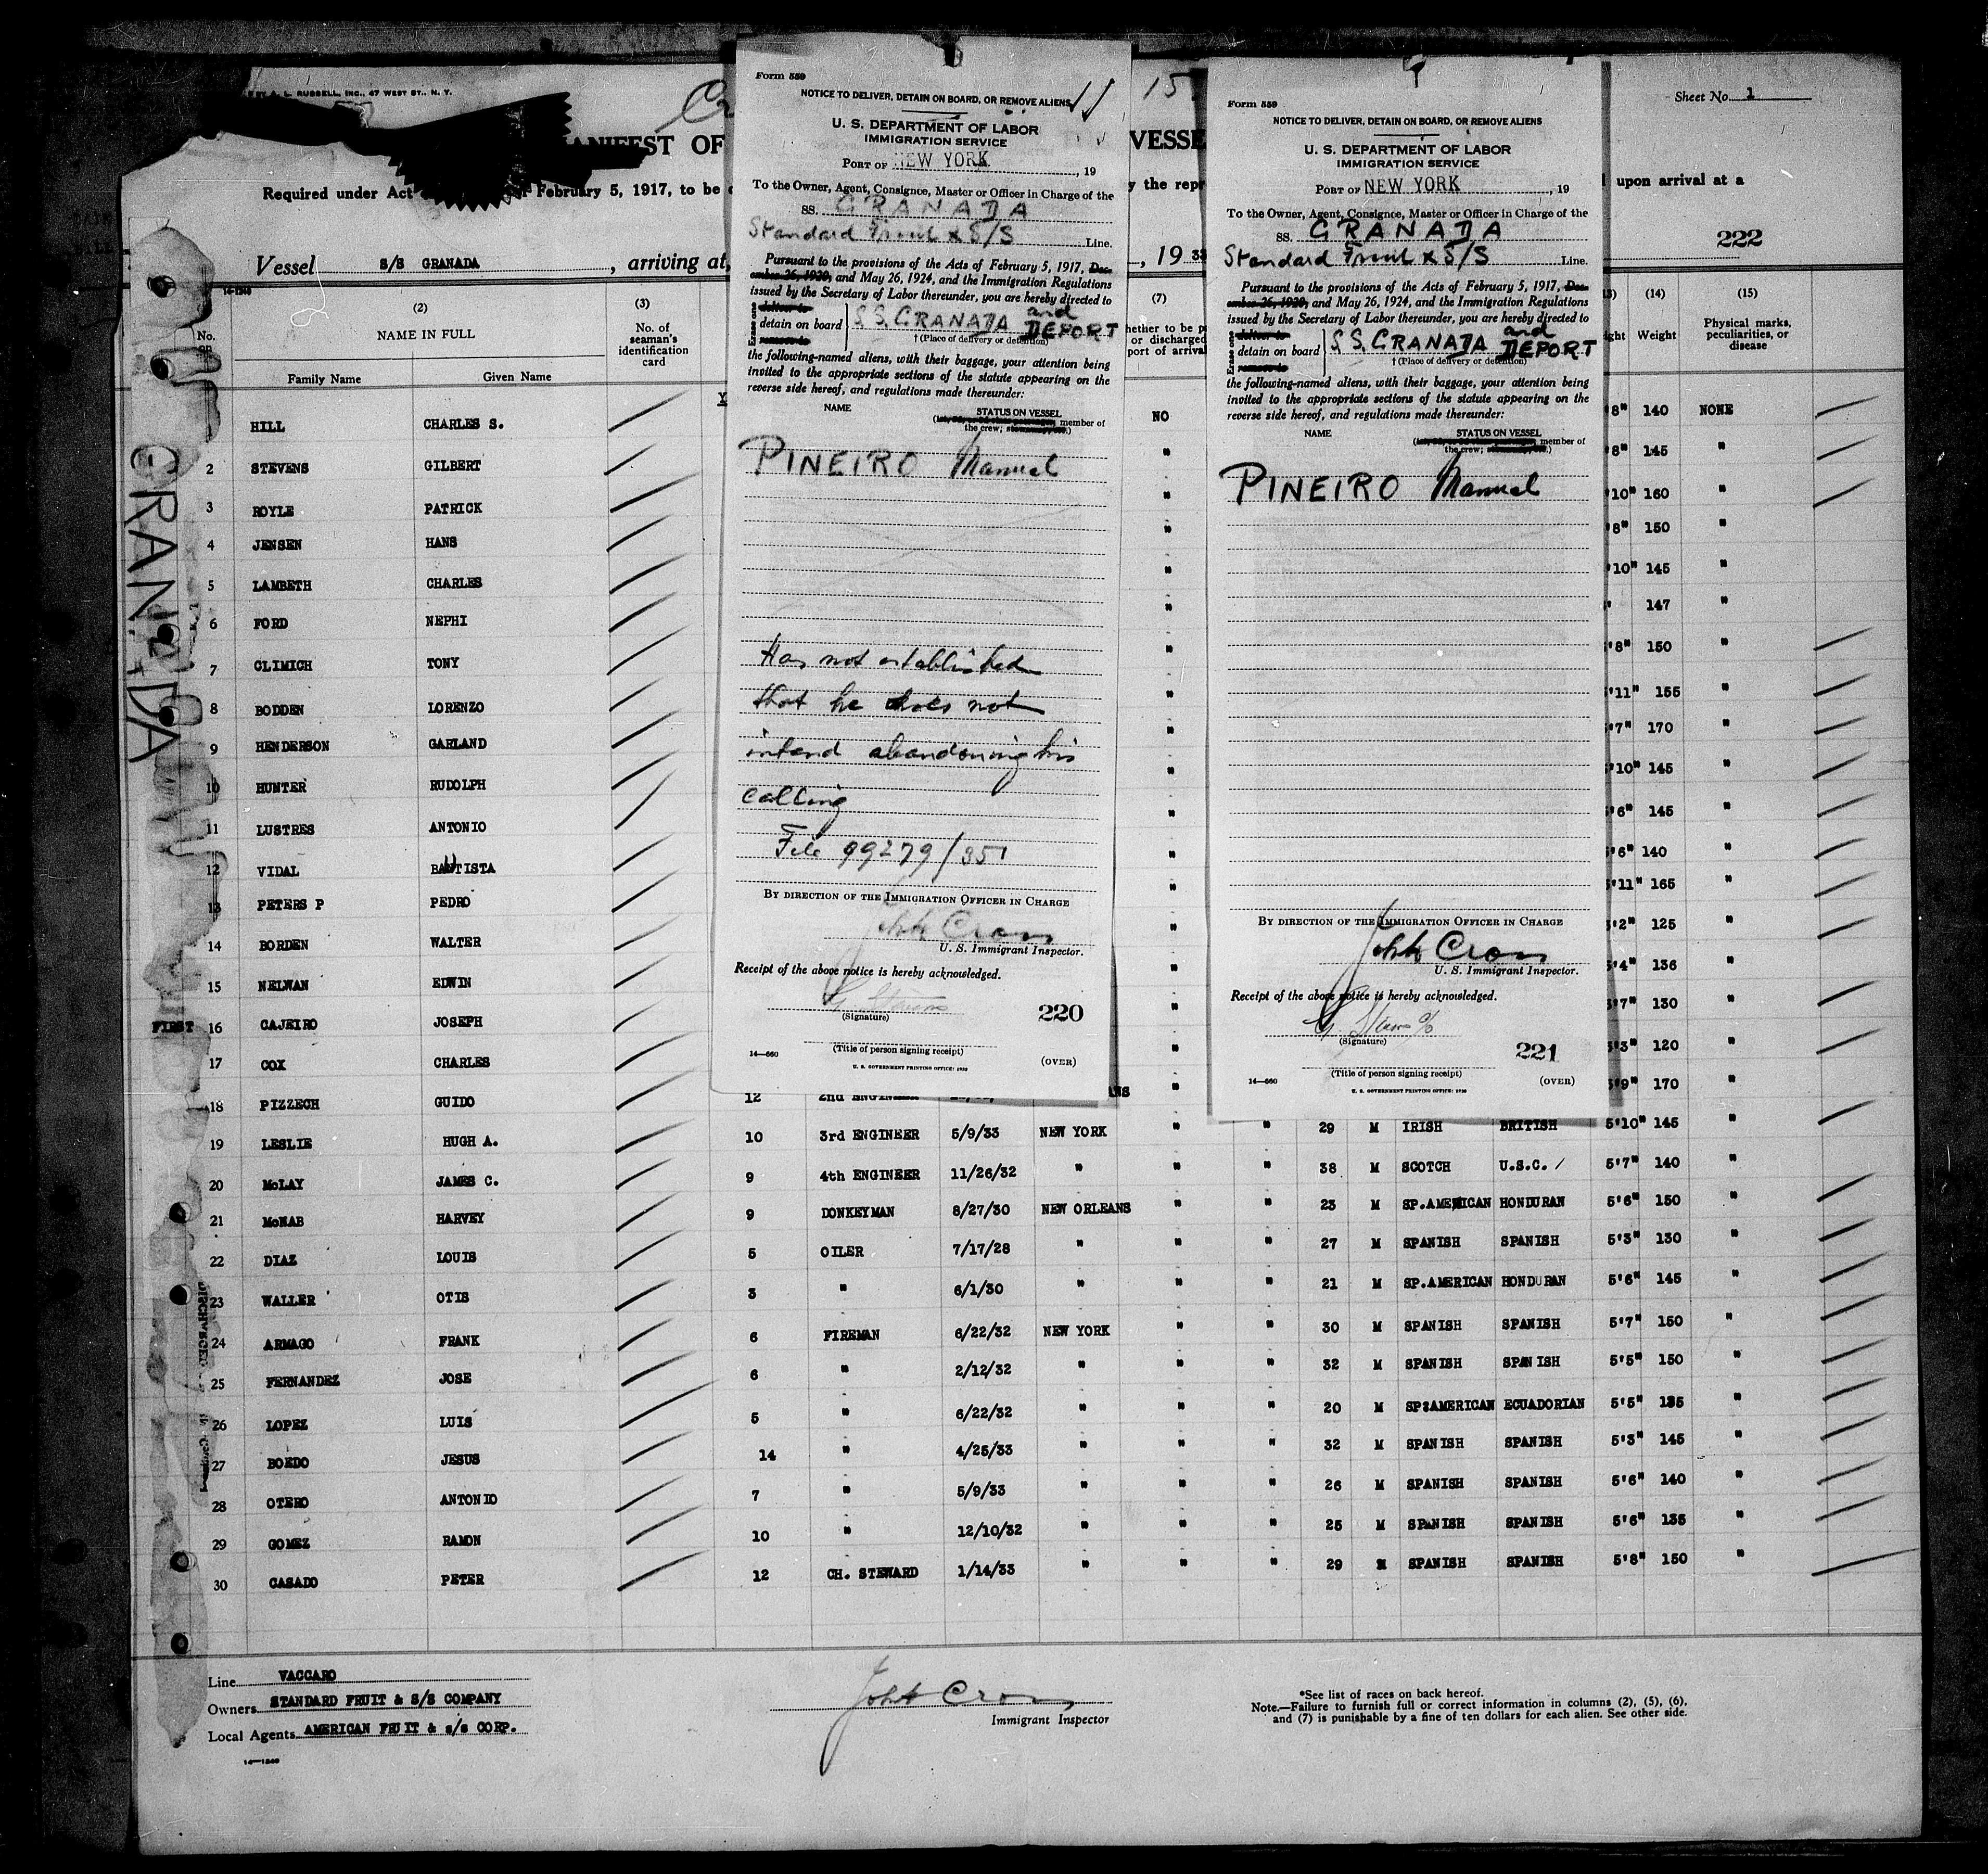 BY A. L. RUSSELL, INC., 47 WEST ST., N. Y.
15
Sheet No. 1
MANIFEST OF
VESSE
Required under Act
February 5, 1917, to be
y the repr
upon arrival at a
222
Vessel S/S GRANADA, arriving at
, 19 33
14-1240
GRANADA
Form 559
NOTICE TO DELIVER, DETAIN ON BOARD, OR REMOVE ALIENS
U. S. DEPARTMENT OF LABOR
IMMIGRATION SERVICE
PORT OF NEW YORK, 19
To the Owner, Agent, Consignee, Master or Officer in Charge of the
SS. GRANADA
Standard Fruit & S/S Line.
Pursuant to the provisions of the Acts of February 5, 1917, Dec-
ember 26, 1920, and May 26, 1924, and the Immigration Regulations
issued by the Secretary of Labor thereunder, you are hereby directed to
Erase one
deliver to
detain on board
remove to
S.S. GRANADA and DEPORT
† (Place of delivery or detention)
the following-named aliens, with their baggage, your attention being
invited to the appropriate sections of the statute appearing on the
reverse side hereof, and regulations made thereunder:
NAME STATUS ON VESSEL
member of
the crew;
PINEIRO Manuel
Has not established
that he does not
intend abandoning his
calling
File 99279/351
BY DIRECTION OF THE IMMIGRATION OFFICER IN CHARGE
John Cross
U. S. Immigrant Inspector.
Receipt of the above notice is hereby acknowledged.
(Signature)
220
(Title of person signing receipt)
14—660
U. S. GOVERNMENT PRINTING OFFICE: 1930
(OVER)
Form 559
NOTICE TO DELIVER, DETAIN ON BOARD, OR REMOVE ALIENS
U. S. DEPARTMENT OF LABOR
IMMIGRATION SERVICE
PORT OF NEW YORK, 19
To the Owner, Agent, Consignee, Master or Officer in Charge of the
SS. GRANADA
Standard Fruit & S/S Line.
Pursuant to the provisions of the Acts of February 5, 1917, Dec-
ember 26, 1920, and May 26, 1924, and the Immigration Regulations
issued by the Secretary of Labor thereunder, you are hereby directed to
Erase one
deliver to
detain on board
remove to
S.S. GRANADA and DEPORT
† (Place of delivery or detention)
the following-named aliens, with their baggage, your attention being
invited to the appropriate sections of the statute appearing on the
reverse side hereof, and regulations made thereunder:
NAME STATUS ON VESSEL
member of
the crew;
PINEIRO Manuel
BY DIRECTION OF THE IMMIGRATION OFFICER IN CHARGE
John Cross
U. S. Immigrant Inspector.
Receipt of the above notice is hereby acknowledged.
(Signature)
221
(Title of person signing receipt)
14—660
U. S. GOVERNMENT PRINTING OFFICE: 1930
(OVER)
(2) (3) (7) (14) (15)
No.
NAME IN FULL
Family Name Given Name
No. of
seaman's
identification
card
hether to be p
or discharged
port of arrival
ight
Weight
Physical marks,
peculiarities, or
disease
HILL CHARLES S. NO 8" 140 NONE
2 STEVENS GILBERT " 8" 145 "
3 ROYLE PATRICK " 10" 160 "
4 JENSEN HANS " 8" 150 "
5 LAMBETH CHARLES " 10" 145 "
6 FORD NEPHI " 147 "
7 CLIMICH TONY " 8" 150 "
8 BODDEN LORENZO " '11" 155 "
9 HENDERSON GARLAND " '7" 170 "
10 HUNTER RUDOLPH " '10" 145 "
11 LUSTRES ANTONIO " '6" 145 "
12 VIDAL BAUTISTA " '6" 140 "
13 PETERS P PEDRO " '11" 165 "
14 BORDEN WALTER " '2" 125 "
15 NELWAN EDWIN " '4" 136 "
FIRST 16 CAJEIRO JOSEPH " '7" 130 "
17 COX CHARLES " '3" 120 "
18 PIZZECH GUIDO 12 2nd ENGINEER " '9" 170 "
19 LESLIE HUGH A. 10 3rd ENGINEER 5/9/33 NEW YORK " " 29 M IRISH BRITISH 5'10" 145 "
20 McLAY JAMES C. 9 4th ENGINEER 11/26/32 " " " 38 M SCOTCH U.S.C. 5'7" 140 "
21 McNAB HARVEY 9 DONKEYMAN 8/27/30 NEW ORLEANS " " 23 M SP.AMERICAN HONDURAN 5'6" 150 "
22 DIAZ LOUIS 5 OILER 7/17/28 " " " 27 M SPANISH SPANISH 5'3" 130 "
23 WALLER OTIS 3 " 6/1/30 " " " 21 M SP.AMERICAN HONDURAN 5'6" 145 "
24 ARMAGO FRANK 6 FIREMAN 6/22/32 NEW YORK " " 30 M SPANISH SPANISH 5'7" 150 "
25 FERNANDEZ JOSE 6 " 2/12/32 " " " 32 M SPANISH SPANISH 5'5" 150 "
26 LOPEZ LUIS 5 " 6/22/32 " " " 20 M SP:AMERICAN ECUADORIAN 5'5" 135 "
27 BOEDO JESUS 14 " 4/25/33 " " " 32 M SPANISH SPANISH 5'3" 145 "
28 OTERO ANTONIO 7 " 5/9/33 " " " 26 M SPANISH SPANISH 5'6" 140 "
29 GOMEZ RAMON 10 " 12/10/32 " " " 25 M SPANISH SPANISH 5'6" 135 "
30 CASADO PETER 12 CH. STEWARD 1/14/33 " " " 29 M SPANISH SPANISH 5'8" 150 "
DISCHARGED
Line VACCARO
Owners STANDARD FRUIT & S/S COMPANY
Local Agents AMERICAN FRUIT & s/s CORP.
14—1240
John Cross
Immigrant Inspector
*See list of races on back hereof.
Note.—Failure to furnish full or correct information in columns (2), (5), (6),
and (7) is punishable by a fine of ten dollars for each alien. See other side.